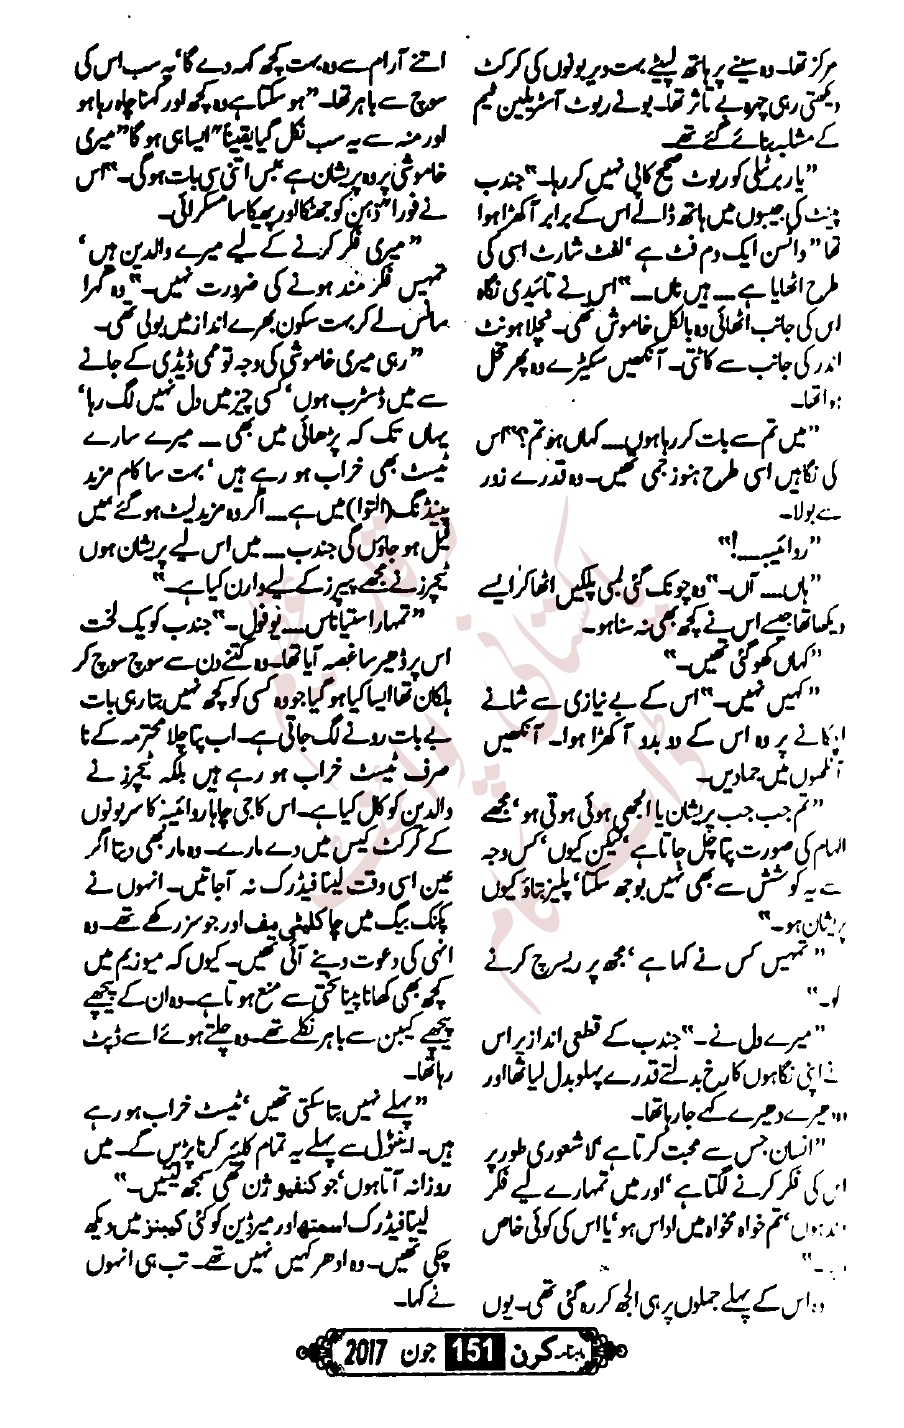 مرکز تھا۔ وہ سینے پر ہاتھ لپیٹے بہت دیر یونوں کی کرکٹ
دیکھتی رہی چہرہ بے تاثر تھا۔ بونے ریوٹ آسٹریلین ٹیم
کے مشابہ بنائے گئے تھے۔
"یار بریٹلی کو ریوٹ صحیح کاپی نہیں کر رہا۔" جندب
پینٹ کی جیبوں میں ہاتھ ڈالے اس کے برابر آ کھڑا ہوا
تھا "واٹسن ایک دم فٹ ہے، لفٹ شارٹ اسی کی
طرح اٹھایا ہے ــــ ہیں ناں ــــ" اس نے تائیدی نگاہ
اس کی جانب اٹھائی وہ بالکل خاموش تھی۔ نچلا ہونٹ
اندر کی جانب سے کاٹتی۔ آنکھیں سکیڑے وہ پھر مخل
ہوا تھا۔
"میں تم سے بات کر رہا ہوں ــــ کہاں ہو تم؟" اس
کی نگاہیں اسی طرح ہنوز جمی تھیں۔ وہ قدرے زور
سے بولا۔
"روائیبہ ــــ!"
"ہاں ــــ آں۔" وہ چونک گئی لمبی پلکیں اٹھا کر ایسے
دیکھا تھا جیسے اس نے کچھ بھی نہ سنا ہو۔
"کہاں کھو گئی تھیں۔"
"کہیں نہیں۔" اس کے بے نیازی سے شانے
اچکانے پر وہ اس کے دوبدو آ کھڑا ہوا۔ آنکھیں
آنکھوں میں جما دیں۔
"تم جب جب پریشان یا الجھی ہوئی ہوتی ہو، مجھے
الہام کی صورت پتا چل جاتا ہے، لیکن کیوں، کس وجہ
سے یہ کوشش سے بھی نہیں بوجھ سکتا، پلیز بتاؤ کیوں
پریشان ہو۔"
"تمہیں کس نے کہا ہے، مجھ پر ریسرچ کرنے
کو۔"
"میرے دل نے۔" جندب کے قطعی انداز پر اس
نے اپنی نگاہوں کا رخ بدلتے قدرے پہلو بدل لیا تھا اور
دھیرے دھیرے کہے جا رہا تھا۔
"انسان جس سے محبت کرتا ہے، لاشعوری طور پر
اس کی فکر کرنے لگتا ہے، اور میں تمہارے لیے فکر
مند ہوں، تم خواہ مخواہ میں اداس ہو، یا اس کی کوئی خاص
وہ اس کے پہلے جملوں پر ہی الجھ کر رہ گئی تھی۔ یوں
اتنے آرام سے وہ بہت کچھ کہہ دے گا، یہ سب اس کی
سوچ سے باہر تھا۔ "ہو سکتا ہے وہ کچھ اور کہنا چاہ رہا ہو
اور منہ سے یہ سب نکل گیا یقیناً" ایسا ہی ہو گا "میری
خاموشی پر وہ پریشان ہے بس اتنی سی بات ہو گی۔" اس
نے فوراً ذہن کو جھٹکا اور پھیکا سا مسکرائی۔
"میری فکر کرنے کے لیے میرے والدین ہیں،
تمہیں فکر مند ہونے کی ضرورت نہیں۔" وہ گہرا
سانس لے کر بہت سکون بھرے انداز میں بولی تھی۔
"رہی میری خاموشی کی وجہ تو ممی ڈیڈی کے جانے
سے میں ڈسٹرب ہوں، کسی چیز میں دل نہیں لگ رہا،
یہاں تک کہ پڑھائی میں بھی ــــ میرے سارے
ٹیسٹ بھی خراب ہو رہے ہیں، بہت سا کام مزید
پینڈنگ (التوا) میں ہے ــــ اگر وہ مزید لیٹ ہو گئے میں
فیل ہو جاؤں گی جندب ــــ میں اس لیے پریشان ہوں
ٹیچرز نے مجھے پیپرز کے لیے وارن کیا ہے۔"
"تمہارا ستیاناس ــــ یوفول۔" جندب کو یک لخت
اس پر ڈھیر سا غصہ آیا تھا۔ وہ کتنے دن سے سوچ سوچ کر
ہلکان تھا ایسا کیا ہو گیا جو وہ کسی کو کچھ نہیں بتا رہی بات
بے بات رونے لگ جاتی ہے۔ اب پتا چلا محترمہ کے نا
صرف ٹیسٹ خراب ہو رہے ہیں بلکہ ٹیچرز نے
والدین کو کال کیا ہے۔ اس کا جی چاہا روائیبہ کا سر بونوں
کے کرکٹ کیس میں دے مارے۔ وہ مار بھی دیتا اگر
عین اسی وقت لینا فیڈرک نہ آ جاتیں۔ انہوں نے
پکنک بیگ میں چاکلیٹی پف اور جوسز رکھے تھے۔ وہ
انہی کی دعوت دینے آئی تھیں۔ کیوں کہ میوزیم میں
کچھ بھی کھانا پینا سختی سے منع ہوتا ہے۔ وہ ان کے پیچھے
پیچھے کیبن سے باہر نکلے تھے۔ وہ چلتے ہوئے اسے ڈپٹ
رہا تھا۔
"پہلے نہیں بتا سکتی تھیں، ٹیسٹ خراب ہو رہے
ہیں۔ اینول سے پہلے یہ تمام کلیئر کرنا پڑیں گے۔ میں
روزانہ آتا ہوں، جو کنفیوژن تھی سمجھ لیتیں۔"
لینا فیڈرک اسمتھ اور میرڈین کو کئی کیبنز میں دیکھ
چکی تھیں۔ وہ ادھر کہیں نہیں تھے۔ تب ہی انہوں
نے کہا۔
ماہنامہ کرن 151 جون 2017